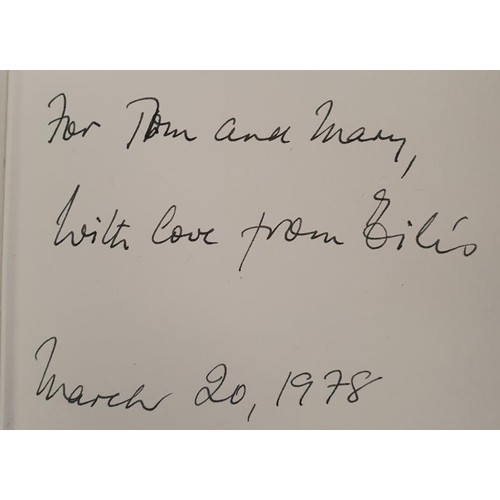 For Tom and Mary,
With love from Eilís
March 20, 1978